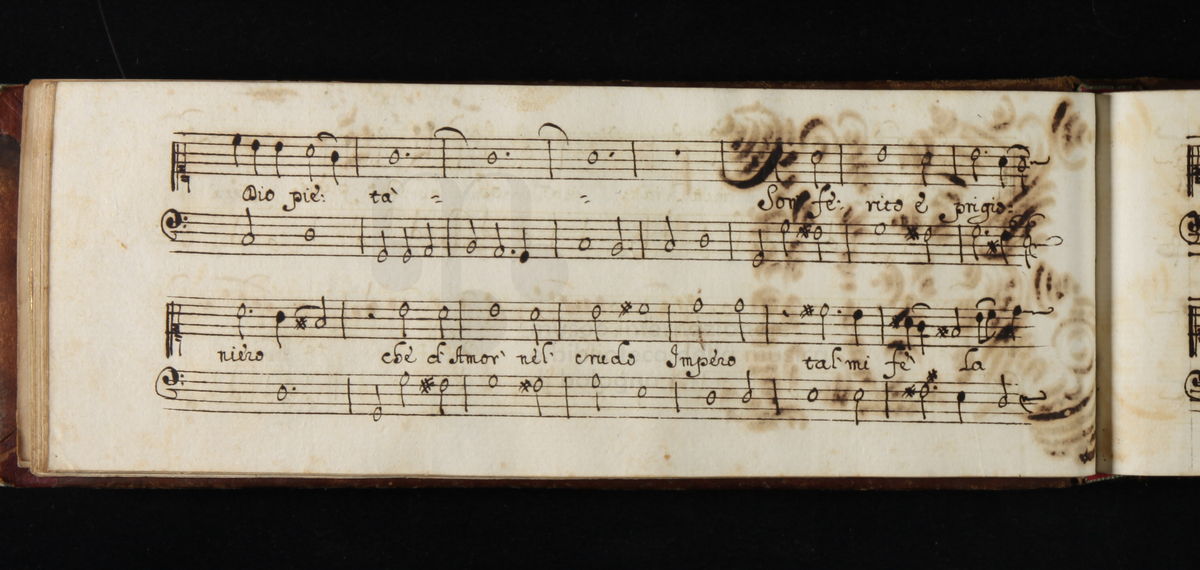 Dio pie: tà = = Son fe: rito è prigio:
niero che d'Amor nel crudo Impero tal mi fè la